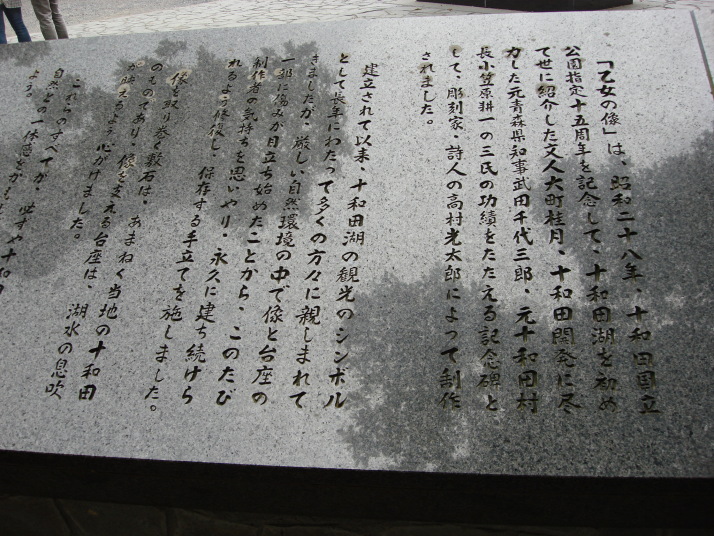 「乙女の像」は、昭和二十八年、十和田国立
公園指定十五周年を記念して、十和田湖を初め
て世に紹介した文人大町桂月、十和田開発に尽
力した元青森県知事武田千代三郎、元十和田村
長小笠原耕一の三氏の功績をたたえる記念碑と
して、彫刻家・詩人の高村光太郎によって制作
されました。
建立されて以来、十和田湖の観光のシンボル
として長年にわたって多くの方々に親しまれて
きましたが、厳しい自然環境の中で像と台座の
一部に傷みが目立ち始めたことから、このたび
制作者の気持ちを思いやり、永久に建ち続けら
れるよう修復し、保存する手立てを施しました。
像を取り巻く敷石は、あまねく当地の十和田
のものであり、像を支える台座は、湖水の息吹
が映えるよう心がけました。
これらのすべてが、
自然との一体感をかもし
よう。